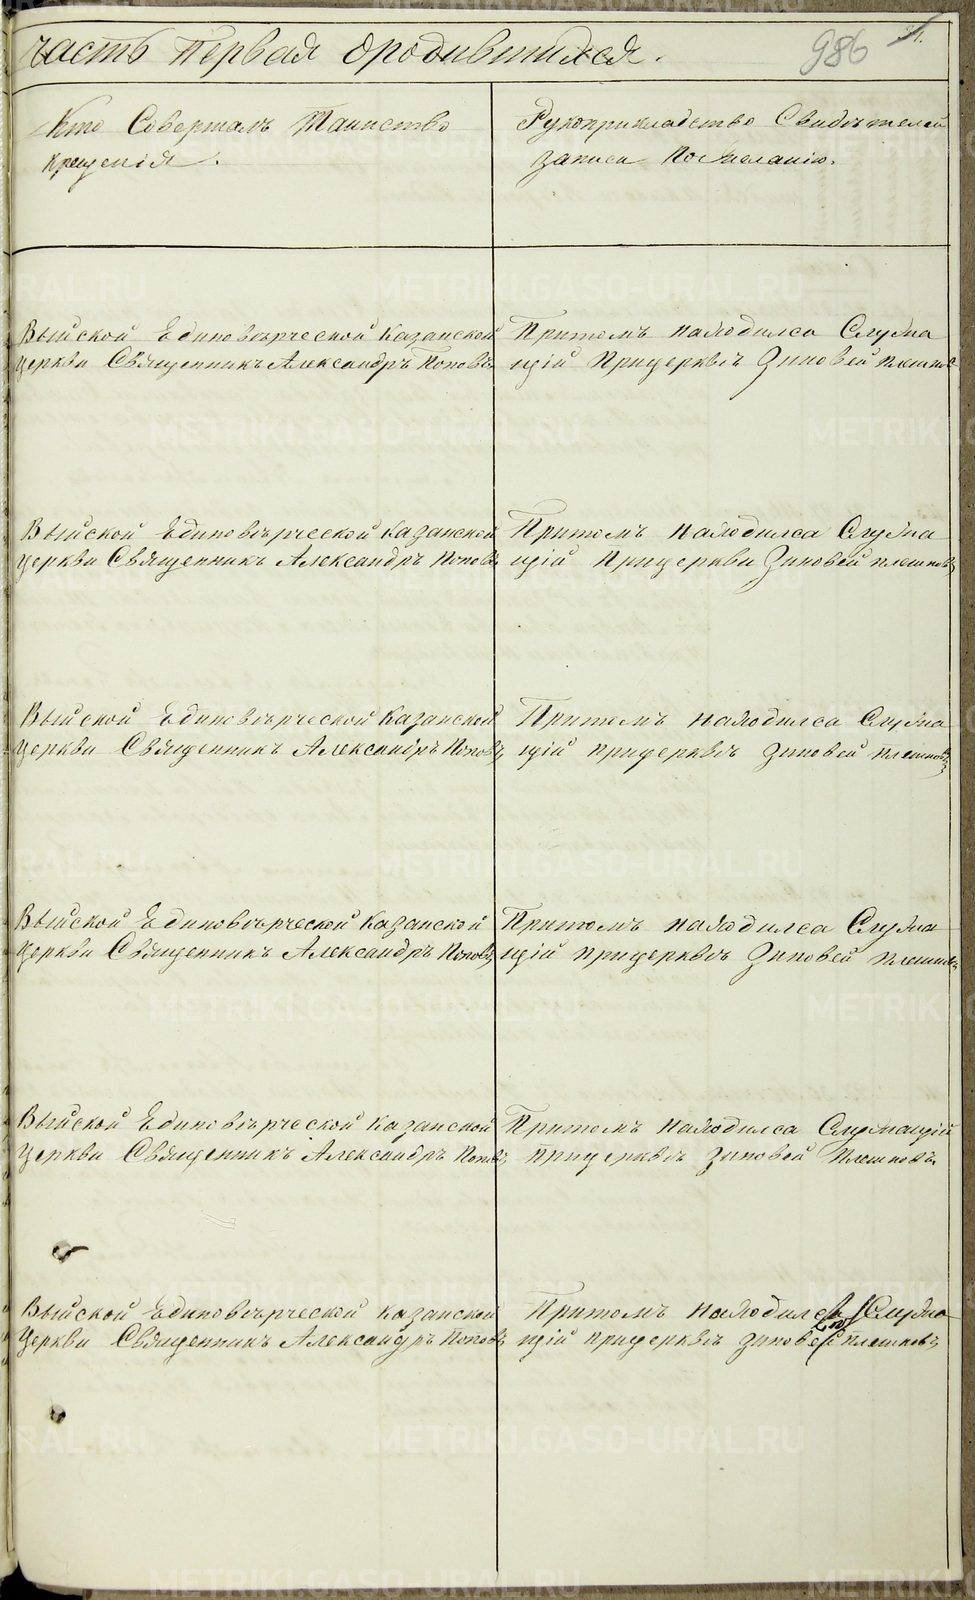 часть первая ородившихся.
986
Кто Совершалъ Таинство
крещенія.
Рукоприкладство Свидѣтелей
записи Пожеланію.
Выйской Единовѣрческой Казанской
церкви Священникъ Александръ Поповъ
Притомъ находился Служа
щій Прицерквѣ Зиновей Плешков
Выйской Единовѣрческой Казанской
церкви Священникъ Александръ Поповъ
Притомъ находился Служа
щій Прицеркви Зиновей Плешковъ
Выйской Единовѣрческой Казанской
церкви Священникъ Александръ Поповъ
Притомъ находился Служа
щій прицерквѣ Зиновей Плешковъ
Выйской Единовѣрческой Казанской
церкви Священникъ Александръ Поповъ
Притомъ находился Служа
щій прицерквѣ Зиновей Плешковъ
Выйской Единовѣрческой Казанской
Церкви Священникъ Александръ Поповъ
Притомъ находился Служащій
прицерквѣ Зиновей Плешковъ
Выйской Единовѣрческой Казанской
Церкви Священникъ Александръ Поповъ
Притомъ находился Служа
щій прицерквѣ Зиновей Плешковъ
METRIKI.GASO-URAL.RU